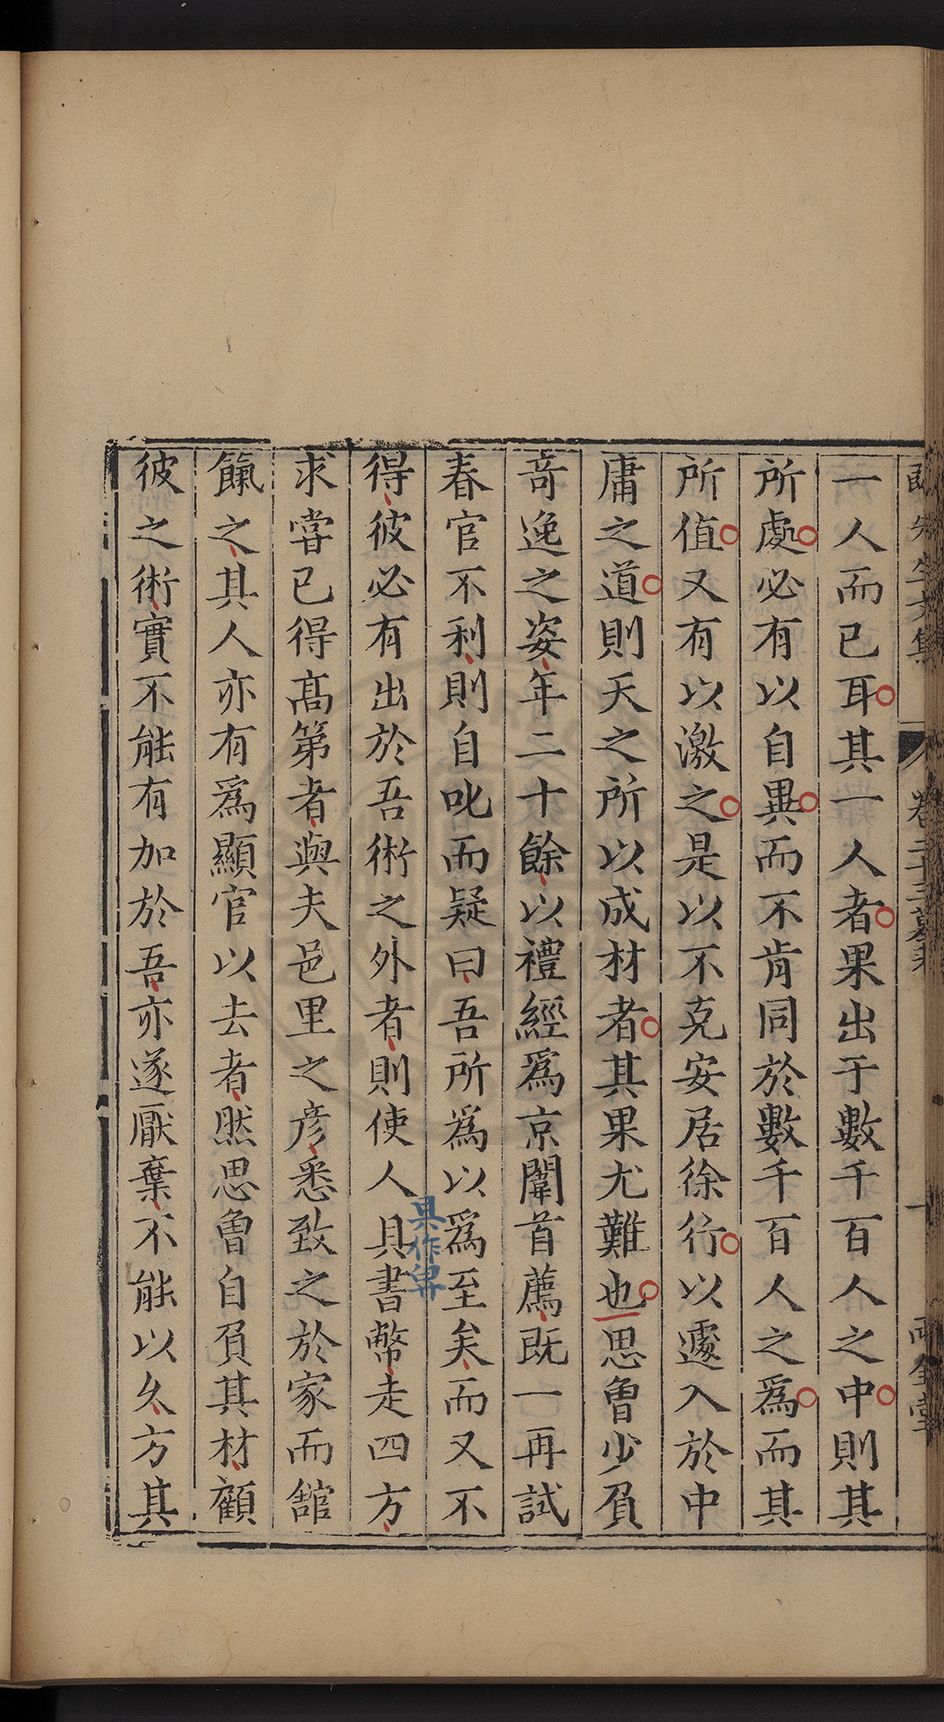 先生文集 卷二十三墓表 十 兩
一人而已耳其一人者果出于數千百人之中則其
所處必有以自異而不肯同於數千百人之為而其
所值又有以激之是以不克安居徐行以遽入於中
庸之道則天之所以成材者其果尤難也思魯少負
竒逸之姿年二十餘以禮經爲京闈首薦既一再試
春官不利則自叱而疑曰吾所爲以爲至矣而又不
得彼必有出於吾術之外者則使人具書幣走四方
具作畀
求嘗已得髙第者與夫邑里之彦悉致之於家而舘
餼之其人亦有爲顯官以去者然思魯自負其材顧
彼之術實不能有加於吾亦遂厭棄不能以久方其